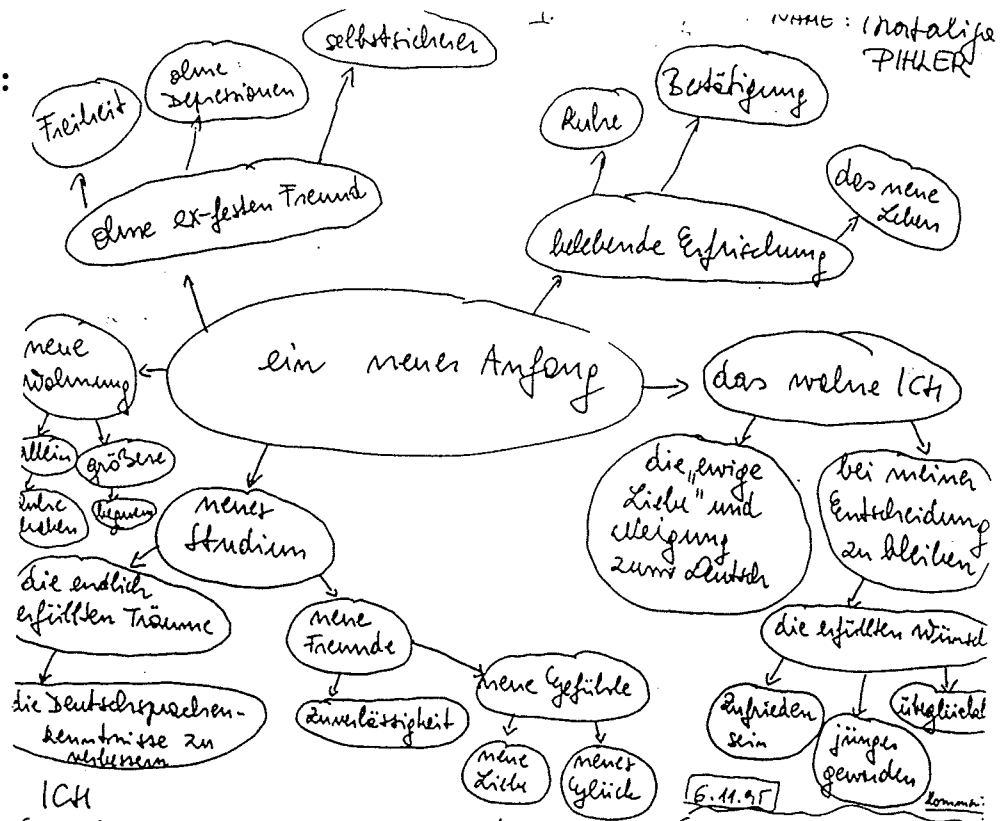 NAME : Natalija
PIHLER
selbstsicherer
ohne
Depressionen
Freiheit
ohne ex-festen Freund
Bestätigung
Ruhe
das neue
Leben
belebende Erfrischung
ein neuer Anfang
neue
Wohnung
allein
größere
bequem
Ruhe
haben
neues
Studium
die endlich
erfüllten Träume
die Deutschsprachen-
kenntnisse zu
verbessern
neue
Freunde
Zuverlässigkeit
neue Gefühle
neue
Liebe
neues
Glück
das wahre ICH
die „ewige
Liebe" und
Neigung
zum Deutsch
bei meiner
Entscheidung
zu bleiben
die erfüllten Wünsch
zufrieden
sein
jünger
geworden
überglückl
ICH
6.11.95